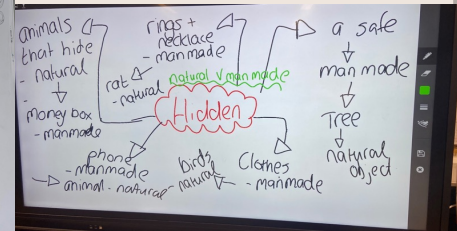 animals
that hide
- natural
-
money box
- manmade
rings +
necklace
- manmade
rat
- natural
natural V manmade
Hidden
a safe
man made
Tree
natural
object
phone
- manmade
animal - natural
birds
natural
Clothes
- manmade